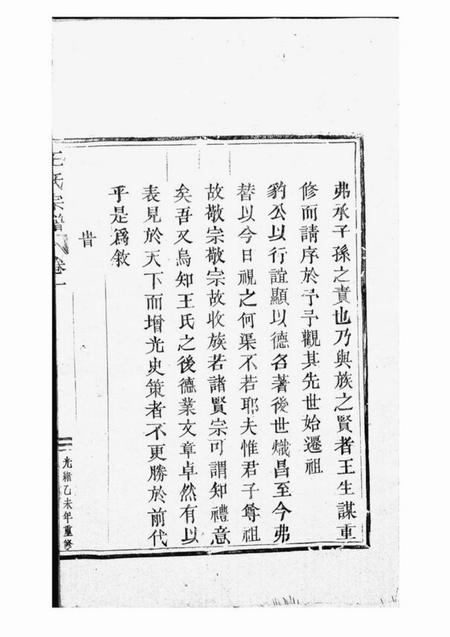 弗承子孫之責也乃與族之賢者王生謀重
修而請序於予予觀其先世始遷祖
豹公以行誼顯以德名著後世熾昌至今弗
替以今日視之何渠不若耶夫惟君子尊祖
故敬宗敬宗故收族若諸賢宗可謂知禮意
矣吾又烏知王氏之後德業文章卓然有以
表見於天下而增光史策者不更勝於前代
乎是爲敘
旹
王氏宗譜
卷一
光緒乙未年重修